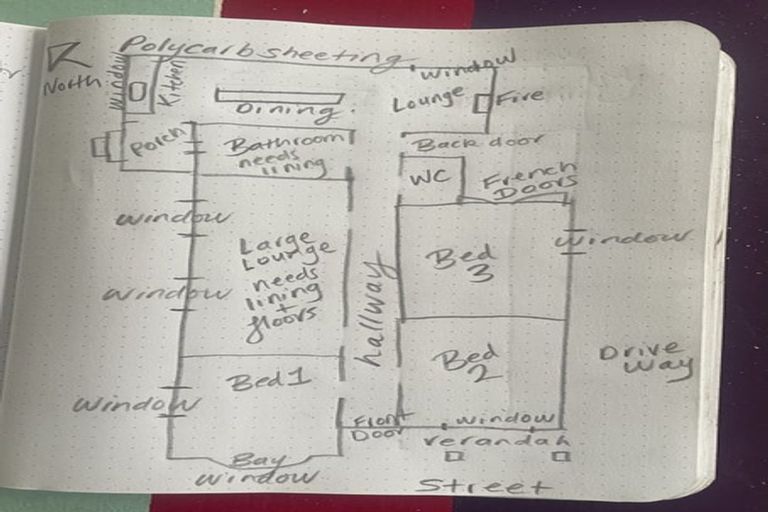 Polycarb sheeting
North
window
Kitchen
window
Lounge
Fire
Dining
Porch
Bathroom
needs
lining
Back door
WC
French
Doors
window
Large
Lounge
needs
lining
+
floors
window
hallway
Bed
3
window
Bed 1
Bed
2
Drive
Way
window
Front
Door
window
verandah
Bay
window
Street